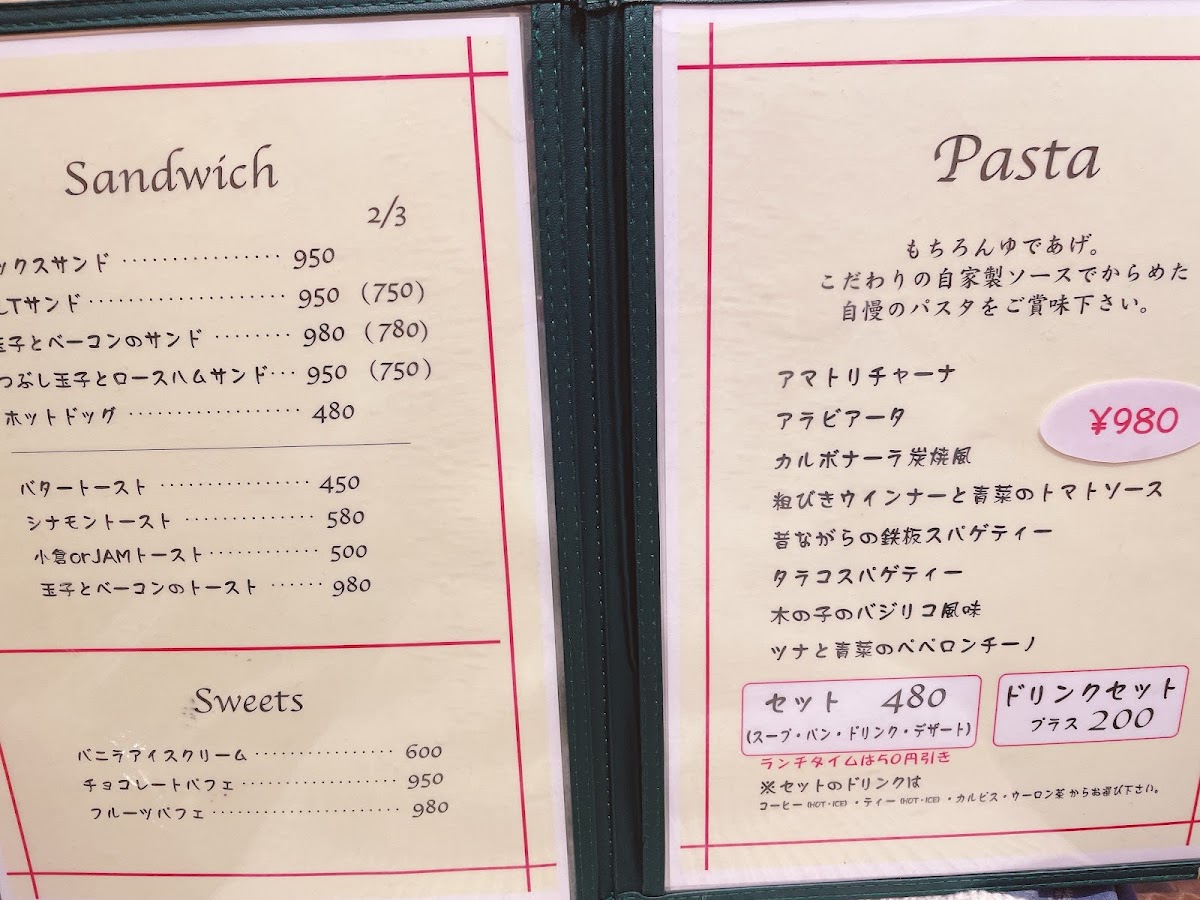 Sandwich
2/3
ックスサンド ................ 950
LTサンド .................... 950 (750)
玉子とベーコンのサンド ........ 980 (780)
つぶし玉子とロースハムサンド... 950 (750)
ホットドッグ .................. 480
バタートースト ................ 450
シナモントースト .............. 580
小倉orJAMトースト ............ 500
玉子とベーコンのトースト ...... 980
Sweets
バニラアイスクリーム ................ 600
チョコレートパフェ .................. 950
フルーツパフェ ...................... 980
Pasta
もちろんゆであげ。
こだわりの自家製ソースでからめた
自慢のパスタをご賞味下さい。
アマトリチャーナ
アラビアータ
¥980
カルボナーラ炭焼風
粗びきウインナーと青菜のトマトソース
昔ながらの鉄板スパゲティー
タラコスパゲティー
木の子のバジリコ風味
ツナと青菜のペペロンチーノ
セット 480
(スープ・パン・ドリンク・デザート)
ドリンクセット
プラス 200
ランチタイムは50円引き
※セットのドリンクは
コーヒー(HOT・ICE)・ティー(HOT・ICE)・カルピス・ウーロン茶 からお選び下さい。